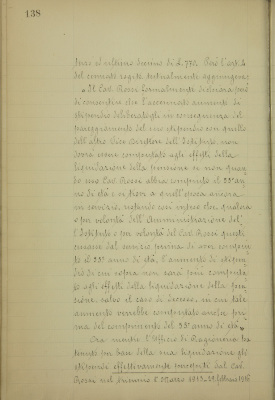 138
tivi al ultimo decimo di £. 770. Però l'art. 4
del comitato rogito testualmente aggiungeva:
"Il Cav. Rossi formalmente dichiara però
di consentire che l'accennato aumento di
stipendio deliberatogli in conseguenza del
pareggiamento del suo stipendio con quello
dell'altro Vice Direttore dell'Istituto non
dovrà essere computato agli effetti della
liquidazione della pensione se non quan-
do esso Cav. Rossi abbia compiuto il 55° an-
no di età e si trovi a quell'epoca ancora
in servizio, restando così inteso che, qualora
o per volontà dell'Amministrazione del-
l'Istituto o per volontà del Cav. Rossi questi
cessasse dal servizio prima di aver compiu-
to il 55° anno di età, l'aumento di stipen-
dio di cui sopra non sarà più computa-
to agli effetti della liquidazione della pen-
sione, salvo il caso di decesso, in cui tale
aumento verrebbe computato anche pri-
ma del compimento del 55° anno di età".
Ora mentre l'Ufficio di Ragioneria ha
tenuto per base della sua liquidazione gli
stipendi effettivamente conseguiti dal Cav.
Rossi nel triennio 1° Marzo 1913 - 29 febbraio 1916